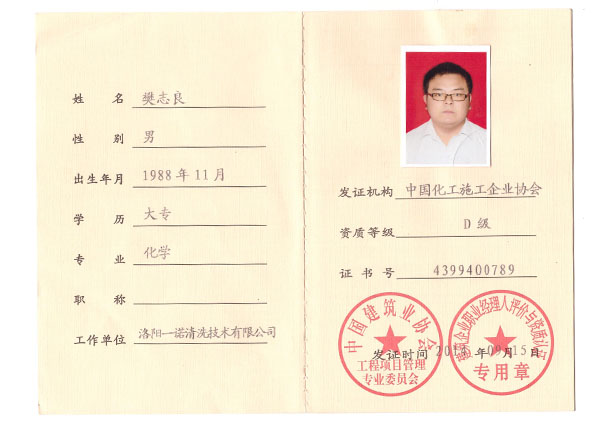 姓 名 樊志良
性 别 男
出生年月 1988 年 11 月
学 历 大专
专 业 化学
职 称
工作单位 洛阳一诺清洗技术有限公司
发证机构 中国化工施工企业协会
资质等级 D 级
证 书 号 4399400789
中国建筑业协会
工程项目管理
专业委员会
企业职业经理人评价与资质认
专用章
发证时间 201 年 09 月 15 日